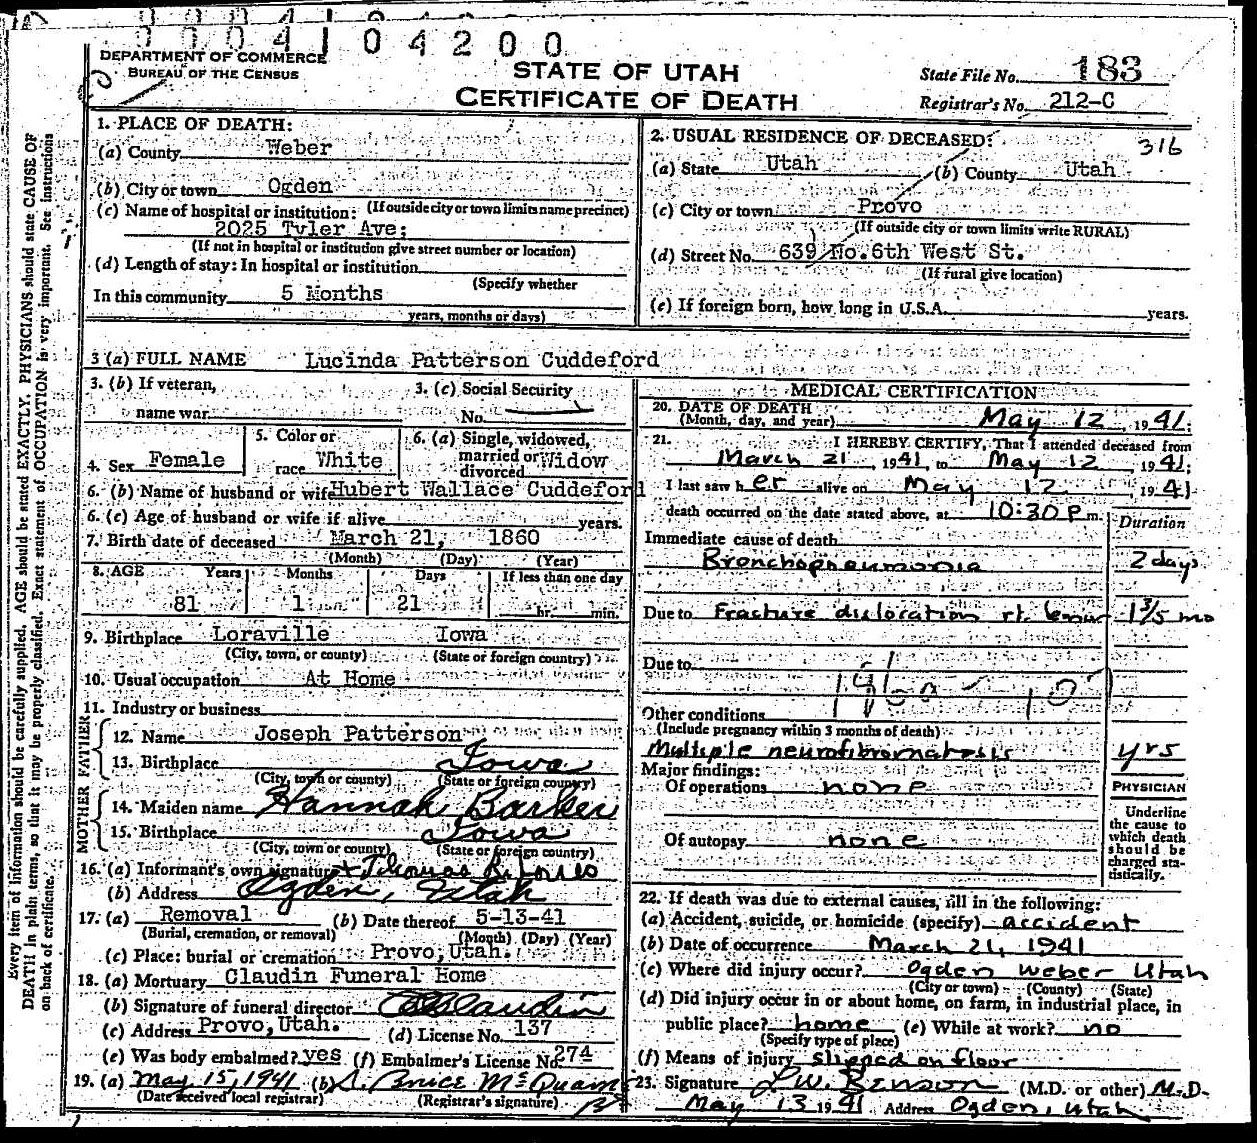 0004104200
DEPARTMENT OF COMMERCE
BUREAU OF THE CENSUS
STATE OF UTAH
CERTIFICATE OF DEATH
State File No. 183
Registrar's No. 212-C
1. PLACE OF DEATH:
(a) County Weber
(b) City or town Ogden
(If outside city or town limits name precinct)
(c) Name of hospital or institution:
2025 Tyler Ave:
(If not in hospital or institution give street number or location)
(d) Length of stay: In hospital or institution
(Specify whether
In this community 5 Months
years, months or days)
2. USUAL RESIDENCE OF DECEASED: 316
(a) State Utah (b) County Utah
(c) City or town Provo
(If outside city or town limits write RURAL)
(d) Street No. 639 No. 6th West St.
(If rural give location)
(e) If foreign born, how long in U.S.A. years.
3 (a) FULL NAME Lucinda Patterson Cuddeford
3. (b) If veteran,
name war
3. (c) Social Security
No.
4. Sex Female
5. Color or
race White
6. (a) Single, widowed,
married or
divorced Widow
6. (b) Name of husband or wife Hubert Wallace Cuddeford
6. (c) Age of husband or wife if alive years.
7. Birth date of deceased March 21, 1860
(Month) (Day) (Year)
8. AGE Years Months Days If less than one day
81 1 21 hr. min.
9. Birthplace Loraville Iowa
(City, town, or county) (State or foreign country)
10. Usual occupation At Home
11. Industry or business
FATHER
12. Name Joseph Patterson
13. Birthplace Iowa
(City, town or county) (State or foreign country)
MOTHER
14. Maiden name Hannah Barker
15. Birthplace Iowa
(City, town or county) (State or foreign country)
16. (a) Informant's own signature Thomas R.
(b) Address Ogden, Utah
17. (a) Removal (b) Date thereof 5-13-41
(Burial, cremation, or removal) (Month) (Day) (Year)
(c) Place: burial or cremation Provo, Utah.
18. (a) Mortuary Claudin Funeral Home
(b) Signature of funeral director Claudin
(c) Address Provo, Utah. (d) License No. 137
(e) Was body embalmed? yes (f) Embalmer's License No. 274
19. (a) May 15, 1941 (b) Bruce McQuain
(Date received local registrar) (Registrar's signature)
MEDICAL CERTIFICATION
20. DATE OF DEATH
(Month, day, and year) May 12, 1941.
21. I HEREBY CERTIFY, That I attended deceased from
March 21, 1941, to May 12, 1941;
I last saw her alive on May 12, 1941
death occurred on the date stated above, at 10:30 P m.
Duration
Immediate cause of death
Bronchopneumonia 2 days
Due to Fracture dislocation rt. femur 1 3/5 mo
Due to
Other conditions
(Include pregnancy within 3 months of death)
Multiple neurofibromatosis yrs
Major findings:
Of operations none
Of autopsy none
PHYSICIAN
Underline
the cause to
which death
should be
charged sta-
tistically.
22. If death was due to external causes, fill in the following:
(a) Accident, suicide, or homicide (specify) accident
(b) Date of occurrence March 21, 1941
(c) Where did injury occur? Ogden Weber Utah
(City or town) (County) (State)
(d) Did injury occur in or about home, on farm, in industrial place, in
public place? home (e) While at work? no
(Specify type of place)
(f) Means of injury slipped on floor
23. Signature L.W. Benson (M.D. or other) M.D.
May 13 1941 Address Ogden, Utah
Every item of information should be carefully supplied. AGE should be stated EXACTLY. PHYSICIANS should state CAUSE OF
DEATH in plain terms, so that it may be properly classified. Exact statement of OCCUPATION is very important. See instructions
on back of certificate.